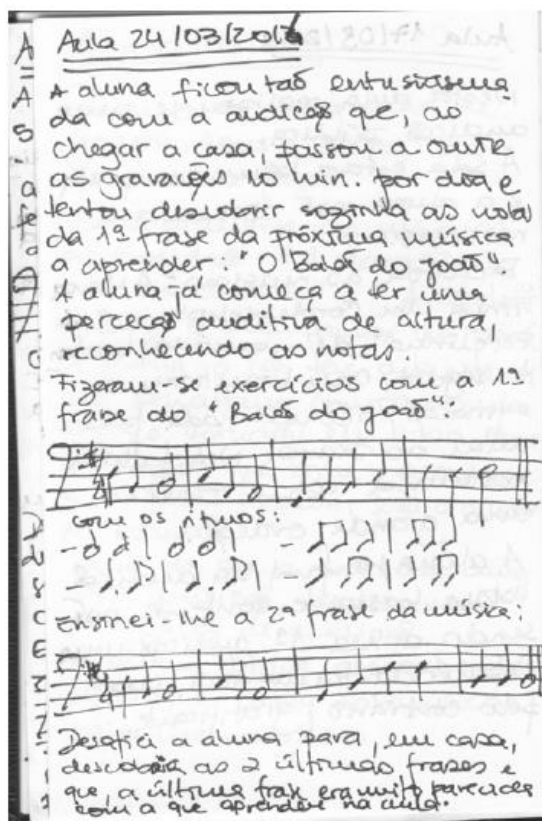 Aula 24/03/2017
A aluna ficou tão entusiasma
da com a audição que, ao
chegar a casa, passou a ouvir
as gravações no min. por dia e
tentou descobrir sozinha as notas
da 1ª frase da próxima música
a aprender: "O Balão do João"
A aluna já começa a ter uma
perceção auditiva de altura,
reconhecendo as notas.
Fizeram-se exercícios com a 1ª
frase do "Balão do João":
com os ritmos:
Ensinei-lhe a 2ª frase da música:
Desafiei a aluna para, em casa,
descobrir as 2 últimas frases e
que, a última frase era muito parecida
com a que aprendeu na aula.